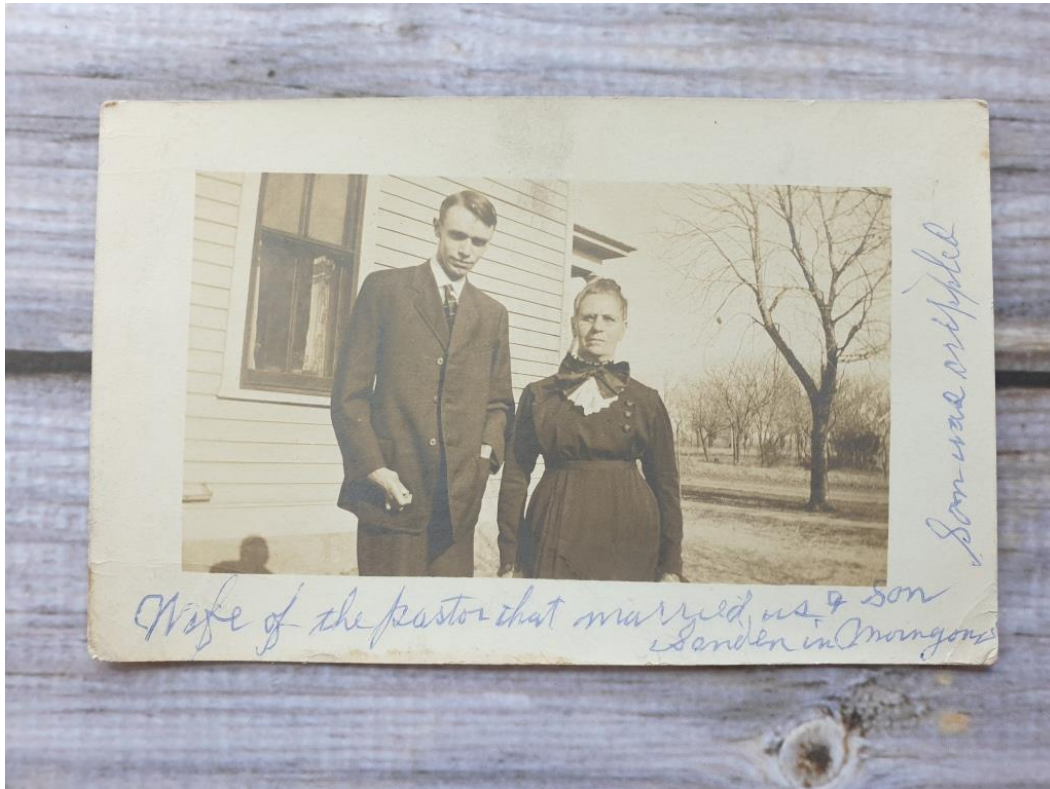 Wife of the pastor that married us & son
Sanden in Moingona
Son was crippled